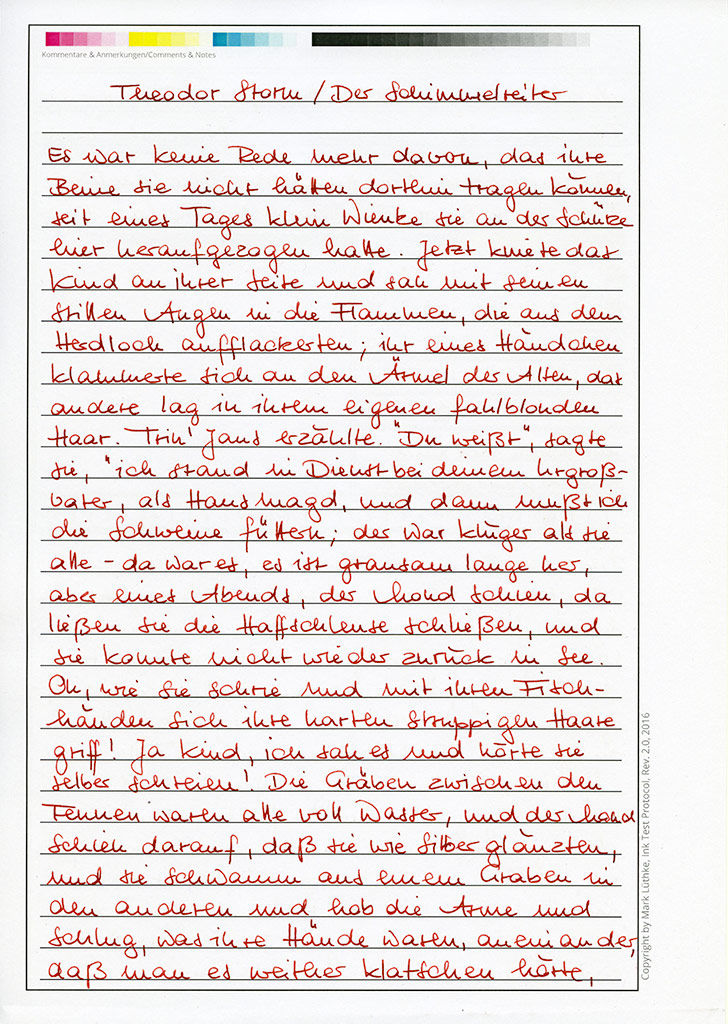 Kommentare & Anmerkungen/Comments & Notes
Theodor Storm / Der Schimmelreiter
Es war keine Rede mehr davon, das ihre
Beine sie nicht hätten dorthin tragen können,
seit eines Tages klein Wienke sie an der Schürze
hier heraufgezogen hatte. Jetzt kniete das
Kind an ihrer Seite und sah mit seinen
stillen Augen in die Flammen, die aus dem
Herdloch aufflackerten; ihr eines Händchen
klammerte sich an den Ärmel der Alten, das
andere lag in ihrem eigenen fahlblonden
Haar. Trin' Jans erzählte. "Du weißt", sagte
sie, "ich stand in Dienst bei deinem Urgroß-
vater, als Hausmagd, und dann mußt ich
die Schweine füttern; der war klüger als sie
alle - da war es, es ist grausam lange her,
aber eines Abends, der Mond schien, da
ließen sie die Haffschleuse schließen, und
sie konnte nicht wieder zurück in See.
Oh, wie sie schrie und mit ihren Fisch-
händen sich ihre harten struppigen Haare
griff! Ja Kind, ich sah es und hörte sie
selber schreien! Die Gräben zwischen den
Fennen waren alle voll Wasser, und der Mond
schien darauf, daß sie wie Silber glänzten,
und sie schwamm aus einem Graben in
den anderen und hob die Arme und
schlug, was ihre Hände waren, aneinander,
daß man es weither klatschen hörte,
Copyright by Mark Lüthke, Ink Test Protocol, Rev. 2.0, 2016